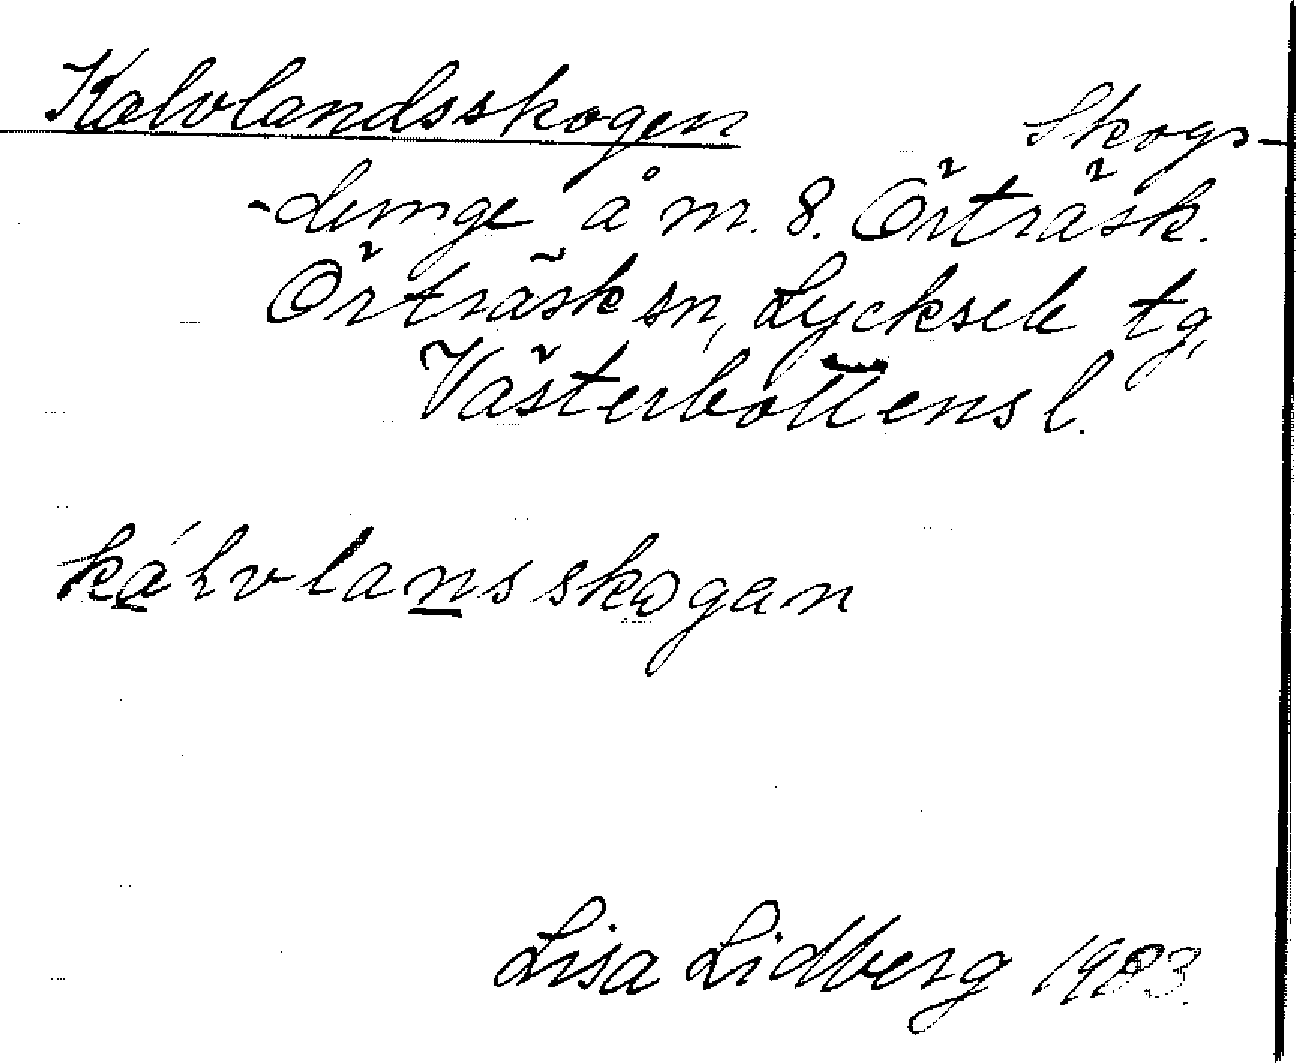 Kalvlandsskogen Skogs-
-dunge å m. 8. Örträsk.
Örträsk sn, Lycksele tg,
Västerbottens l.
kálvlansskogan
Lisa Lidberg 1983.